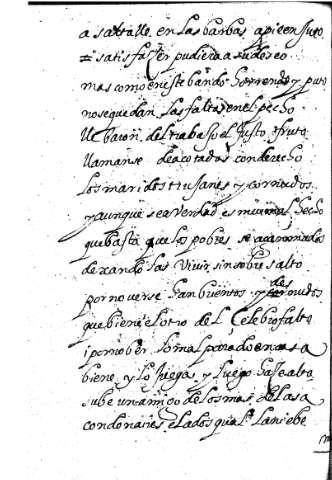 a saltallo en las barbas a pie enjuto
satisfaçer pudiera a su deseo
mas como en este bando horrendo y puto
no se quedan las faltas en el pecho
Ul baron del trabajo el justo fruto
llamanse de acotados con derecho
los maridos truanes y cornudos
y aunque sea verdad es mui mal hecho
que basta que los pobres
dexandolas vivir sin sobresalto
por no verse hambrientos y desnudos
que biene el otro del celebro falto
i por no ber lo mal parado en casa
biene y lo juega y luego haze alto
sube un amigo de los mas de la sa
con donaires elados qual la niebe